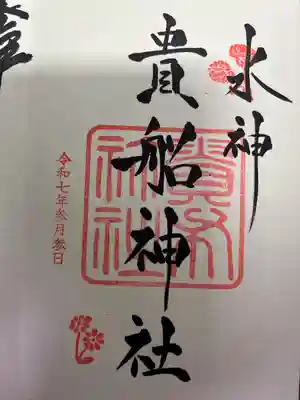 水神
貴船神社
貴船
神社
令和七年参月参日